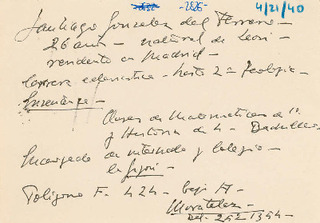 -285- 4/21/40
Santiago Gonzalez del Ferrero -
26 años - natural de León -
residente en Madrid -
Carrera eclesiastica - hasta 2º Teologia -
Enseñanza -
Clases de Matematicas de 1º
y Historia de 4º Bachiller
Encargado de internado y Colegio -
en Gijón -
Poligono F - 424 - bajo A -
Moratalaz -
Tel. 252 1344 -